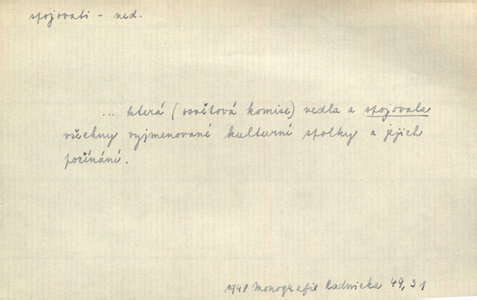 spojovati - ned.
... která (osvětová komise) vedla a spojovala
všechny vyjmenované kulturní spolky a jejich
počínání.
1948 Monografie Radnicka 49, 31